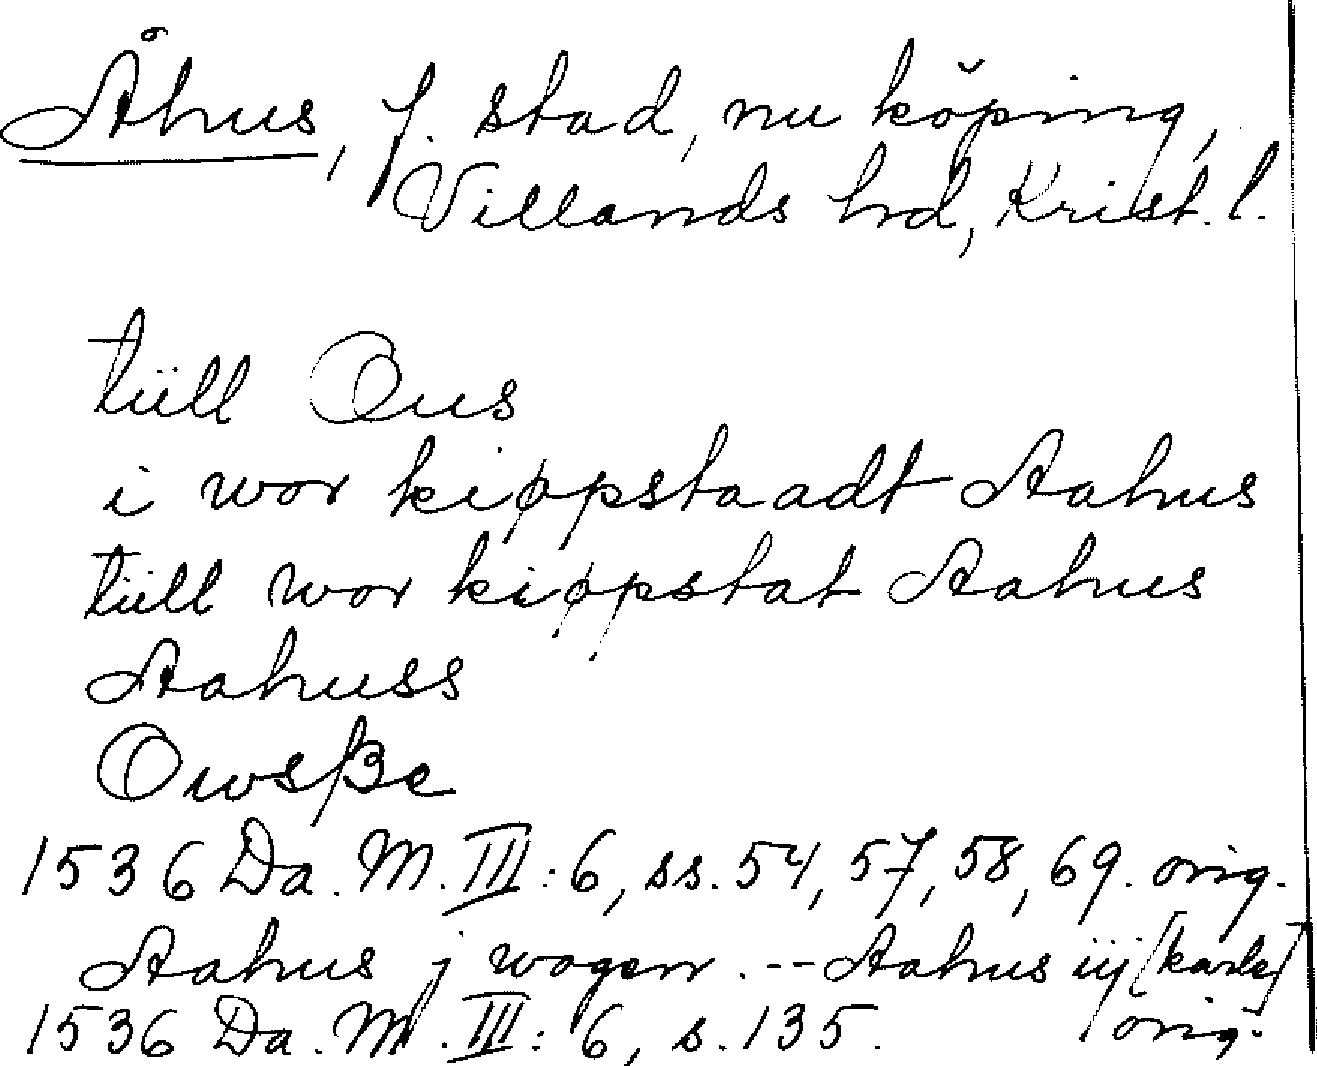 Åhus, f. stad, nu köping,
Villands hd, Krist. l.
tiill Ous
i wor kiøpstaadt Aahus
tiill wor kiøpstat Aahus
Aahuss
Owsße
1536 Da. M. III: 6, ss. 54, 57, 58, 69. orig.
Aahus j wogen. -- Aahus iij [karle]
1536 Da. M. III: 6, s. 135. orig.